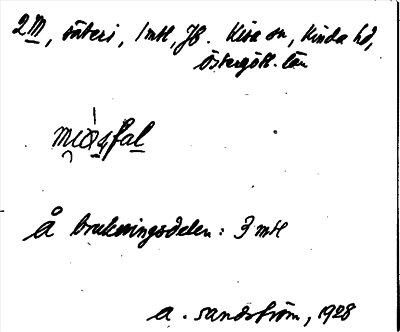 2 M, säteri, 1 mtl, Jb. Kisa sn, Kinda hd,
Östergötl. län
Å brukningsdelen: 3 mtl
A. Sandström, 1928